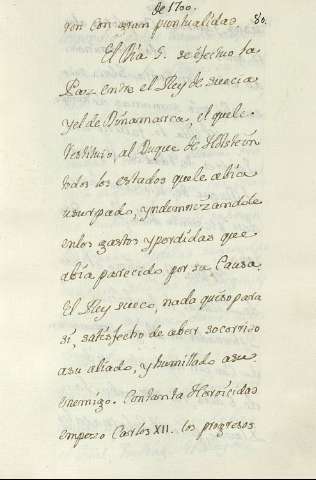 de 1700.
ron con gran puntualidas. 80.
El Dia 5. se efectuo la
Paz entre el Rey de suecia
y el de Dinamarca, el quele
restituio, al Duque de Holstein
todos los estados quele abia
usurpado, yndemnizandole
enlos gastos yperdidas que
abia parecido por su Causa.
El Rey sueco, nada quiso para
si, satisfecho de aber socorrido
asu aliado, y humillado asu
enemigo. Contanta Heroicidas
empezo Carlos XII. los progresos